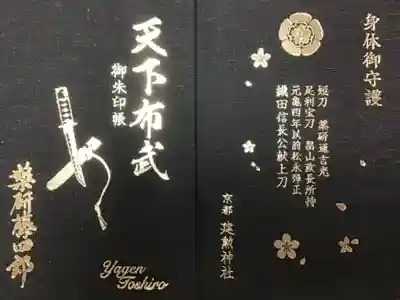 身体御守護
短刀 薬研通吉光
足利宝刀 畠山政長所持
元亀四年以前松永弾正
織田信長公献上刀
京都 建勲神社
天下布武
御朱印帳
薬研藤四郎
Yagen
Toshiro